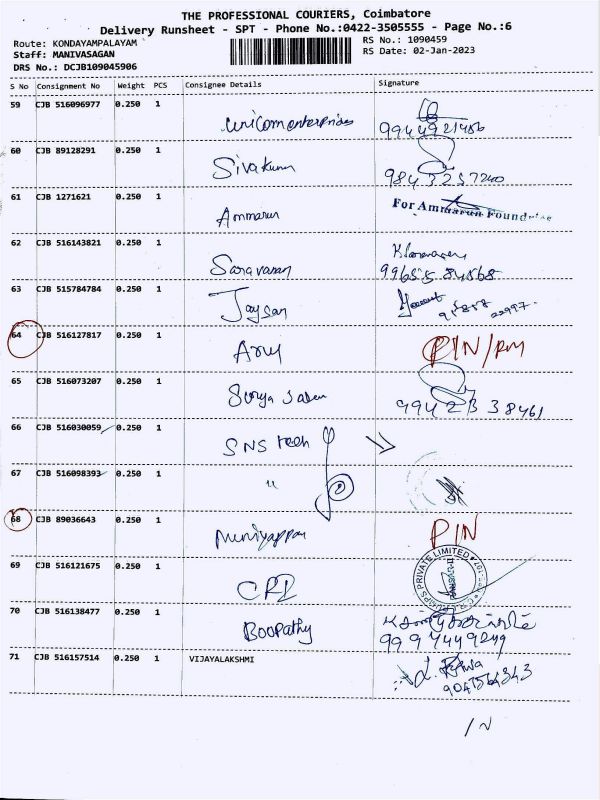 THE PROFESSIONAL COURIERS, Coimbatore
Delivery Runsheet - SPT - Phone No.:0422-3505555 - Page No.:6
Route: KONDAYAMPALAYAM RS No.: 1090459
Staff: MANIVASAGAN RS Date: 02-Jan-2023
DRS No.: DCJB109045906
S No Consignment No Weight PCS Consignee Details Signature
59 CJB 516096977 0.250 1
unicom enterprises 9944921486
60 CJB 89128291 0.250 1
Sivakumar 9843257200
61 CJB 1271621 0.250 1 For Ammarun Foundries
Ammarun
62 CJB 516143821 0.250 1
Saravanan 9965584568
63 CJB 515784784 0.250 1
Jaysan
64 CJB 516127817 0.250 1
Arul PIN/RM
65 CJB 516073207 0.250 1
Surya 9942338461
66 CJB 516030059 0.250 1
SNS tech
67 CJB 516098393 0.250 1
" 2
68 CJB 89036643 0.250 1
Muniyappan PIN
69 CJB 516121675 0.250 1 PRIVATE LIMITED
CRI
70 CJB 516138477 0.250 1
Boopathy 9994449249
71 CJB 516157514 0.250 1 VIJAYALAKSHMI
9047564343